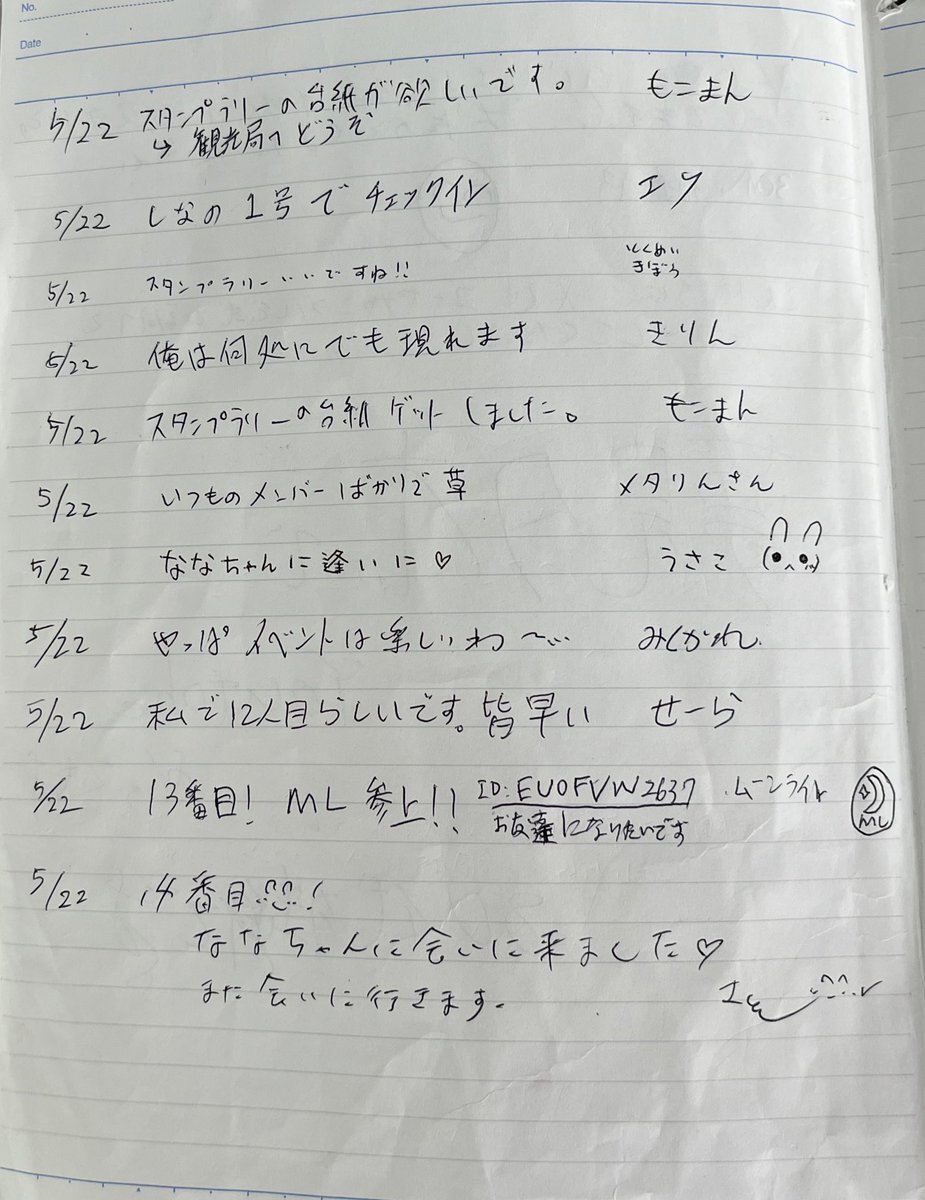 No.
Date
5/22 スタンプラリーの台紙が欲しいです。 もこまん
↳ 観光局へどうぞ
5/22 しなの1号でチェックイン エツ
5/22 スタンプラリーいいですね!!
きぼう
5/22 俺は何処にでも現れます きりん
5/22 スタンプラリーの台紙ゲットしました。 もこまん
5/22 いつものメンバーばかりで草 メタりんさん
5/22 ななちゃんに逢いに♡ うさこ
5/22 やっぱイベントは楽しいわ〜… みくかれ.
5/22 私で12人目らしいです。皆早い せーら
5/22 13番目! ML参上!! ID:EUOFVW2637 ムーンライト ML
お友達になりたいです
5/22 14番目!
ななちゃんに会いに来ました♡
また会いに行きます。